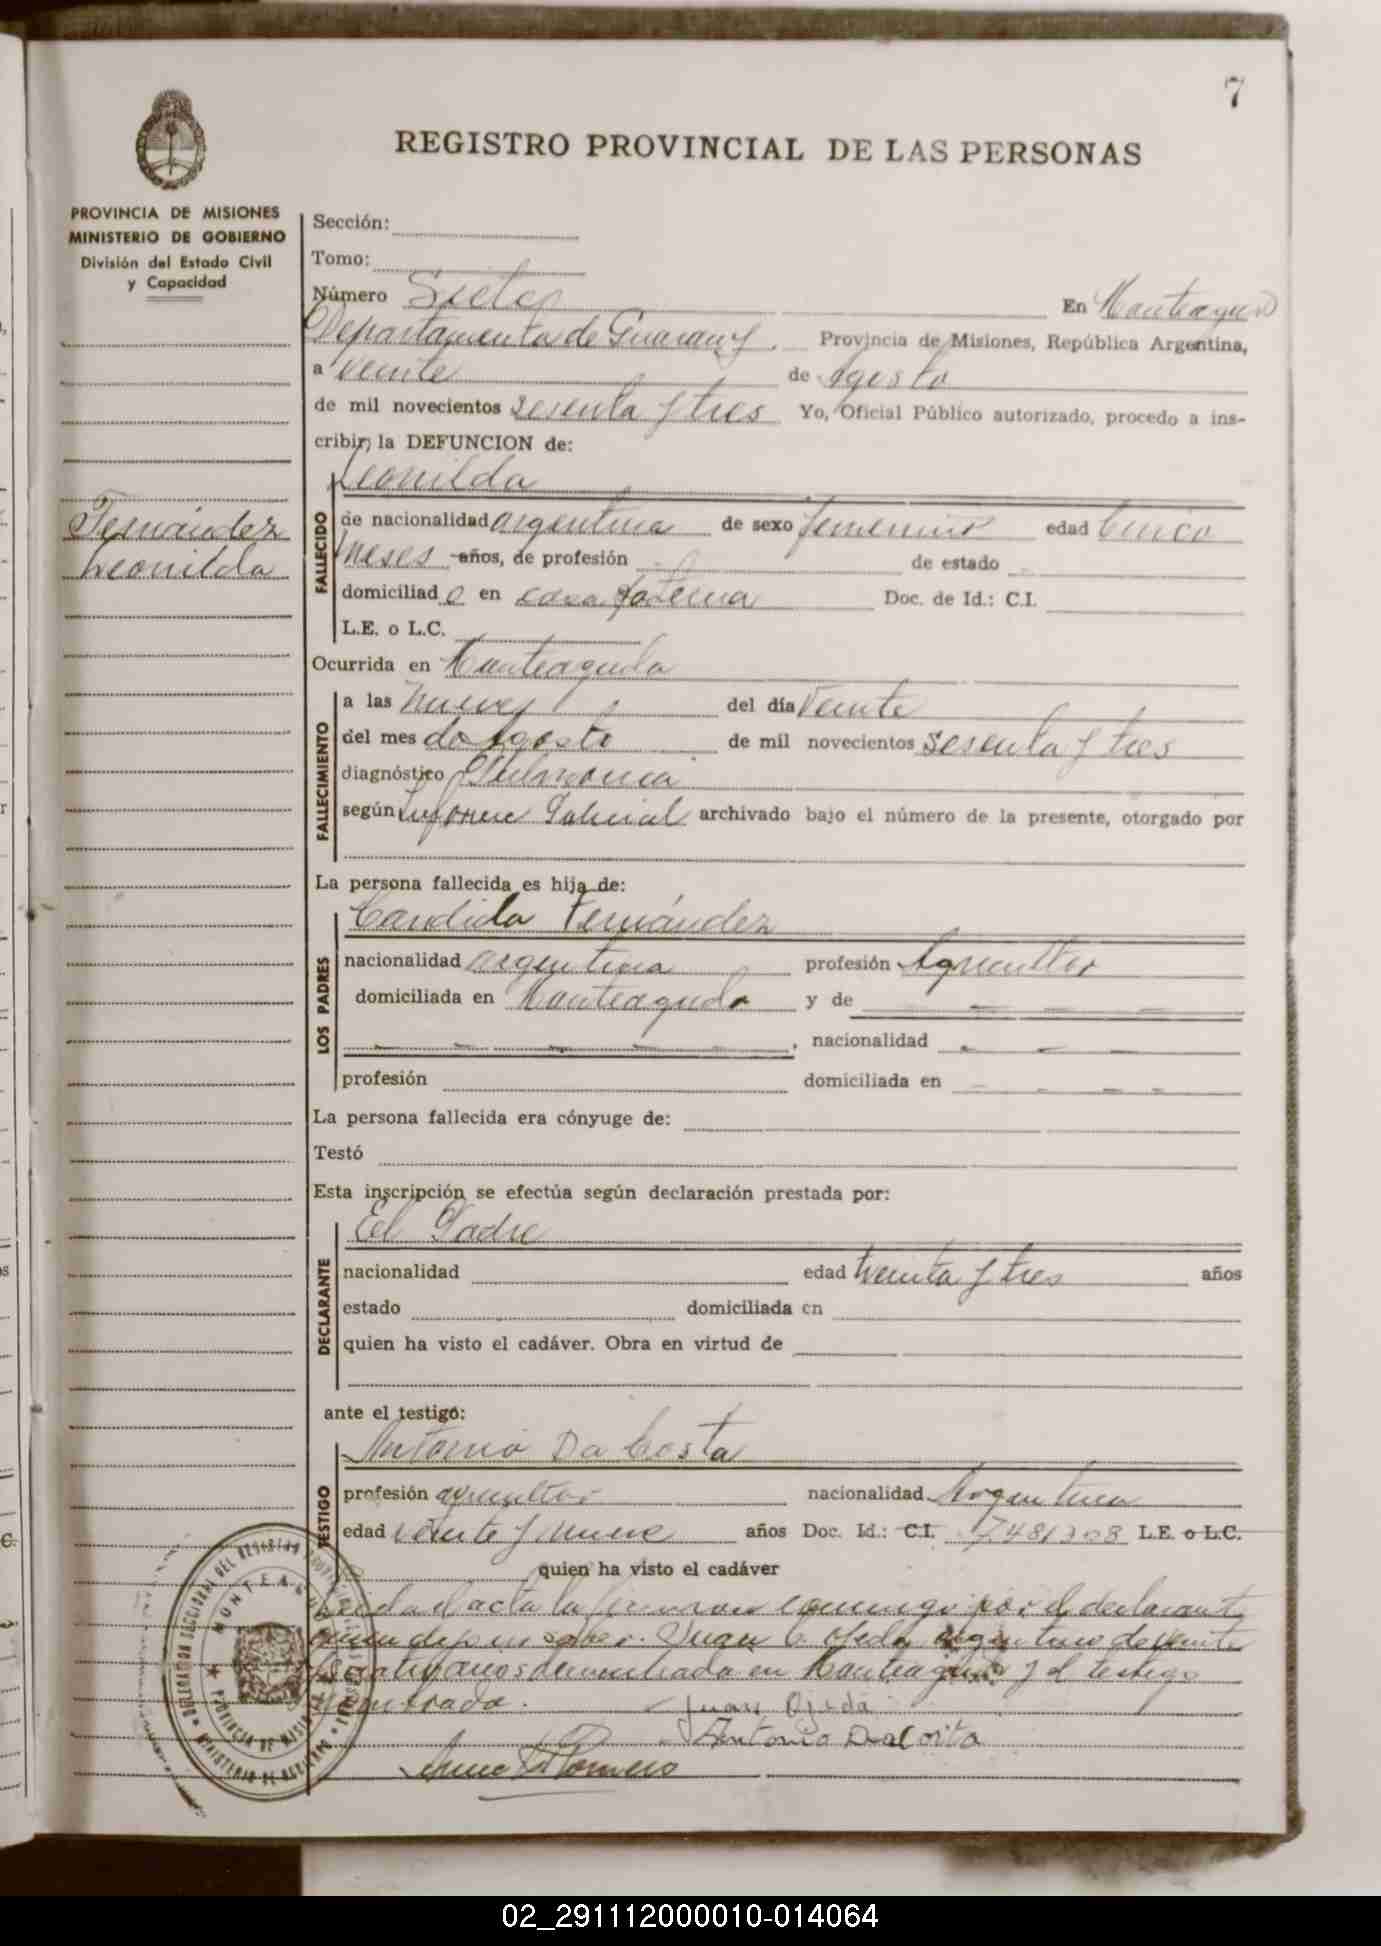 7
REGISTRO PROVINCIAL DE LAS PERSONAS
PROVINCIA DE MISIONES
MINISTERIO DE GOBIERNO
División del Estado Civil
y Capacidad
Sección:
Tomo:
Número Siete En Monteagudo
Departamento de Guaraní. Provincia de Misiones, República Argentina,
a veinte de Agosto
de mil novecientos sesenta y tres Yo, Oficial Público autorizado, procedo a ins-
cribir, la DEFUNCION de:
Leonilda
Fernández
Leonilda
FALLECIDO
de nacionalidad argentina de sexo femenino edad Cinco
meses años, de profesión de estado
domiciliado en casa paterna Doc. de Id.: C.I.
L.E. o L.C.
Ocurrida en Monteagudo
FALLECIMIENTO
a las nueve del día Veinte
del mes de Agosto de mil novecientos sesenta y tres
diagnóstico Pulmonia
según Informe Policial archivado bajo el número de la presente, otorgado por
La persona fallecida es hija de:
LOS PADRES
Candido Fernández
nacionalidad argentina profesión Agricultor
domiciliada en Monteagudo y de
nacionalidad
profesión domiciliada en
La persona fallecida era cónyuge de:
Testó
Esta inscripción se efectúa según declaración prestada por:
DECLARANTE
El Padre
nacionalidad edad treinta y tres años
estado domiciliada en
quien ha visto el cadáver. Obra en virtud de
ante el testigo:
TESTIGO
Antonio Da Costa
profesión agricultor nacionalidad Argentina
edad veinte y nueve años Doc. Id.: C.I. 7.481.308 L.E. o L.C.
quien ha visto el cadáver
Leida el acta la firman conmigo por el declarante
quien dijo no saber. Juan C. Ojeda argentino de veinte
años domiciliado en Monteagudo y el testigo
nombrado.
Juan Ojeda
Antonio Dacosta
DELEGACION SECCIONAL DEL REGISTRO
MONTEAGUDO
PROVINCIA DE MISIONES
MINISTERIO DE GOBIERNO
02_291112000010-014064